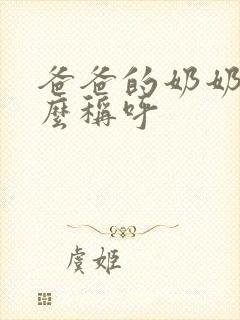 爸爸的奶奶
麼稱呼
虞姬